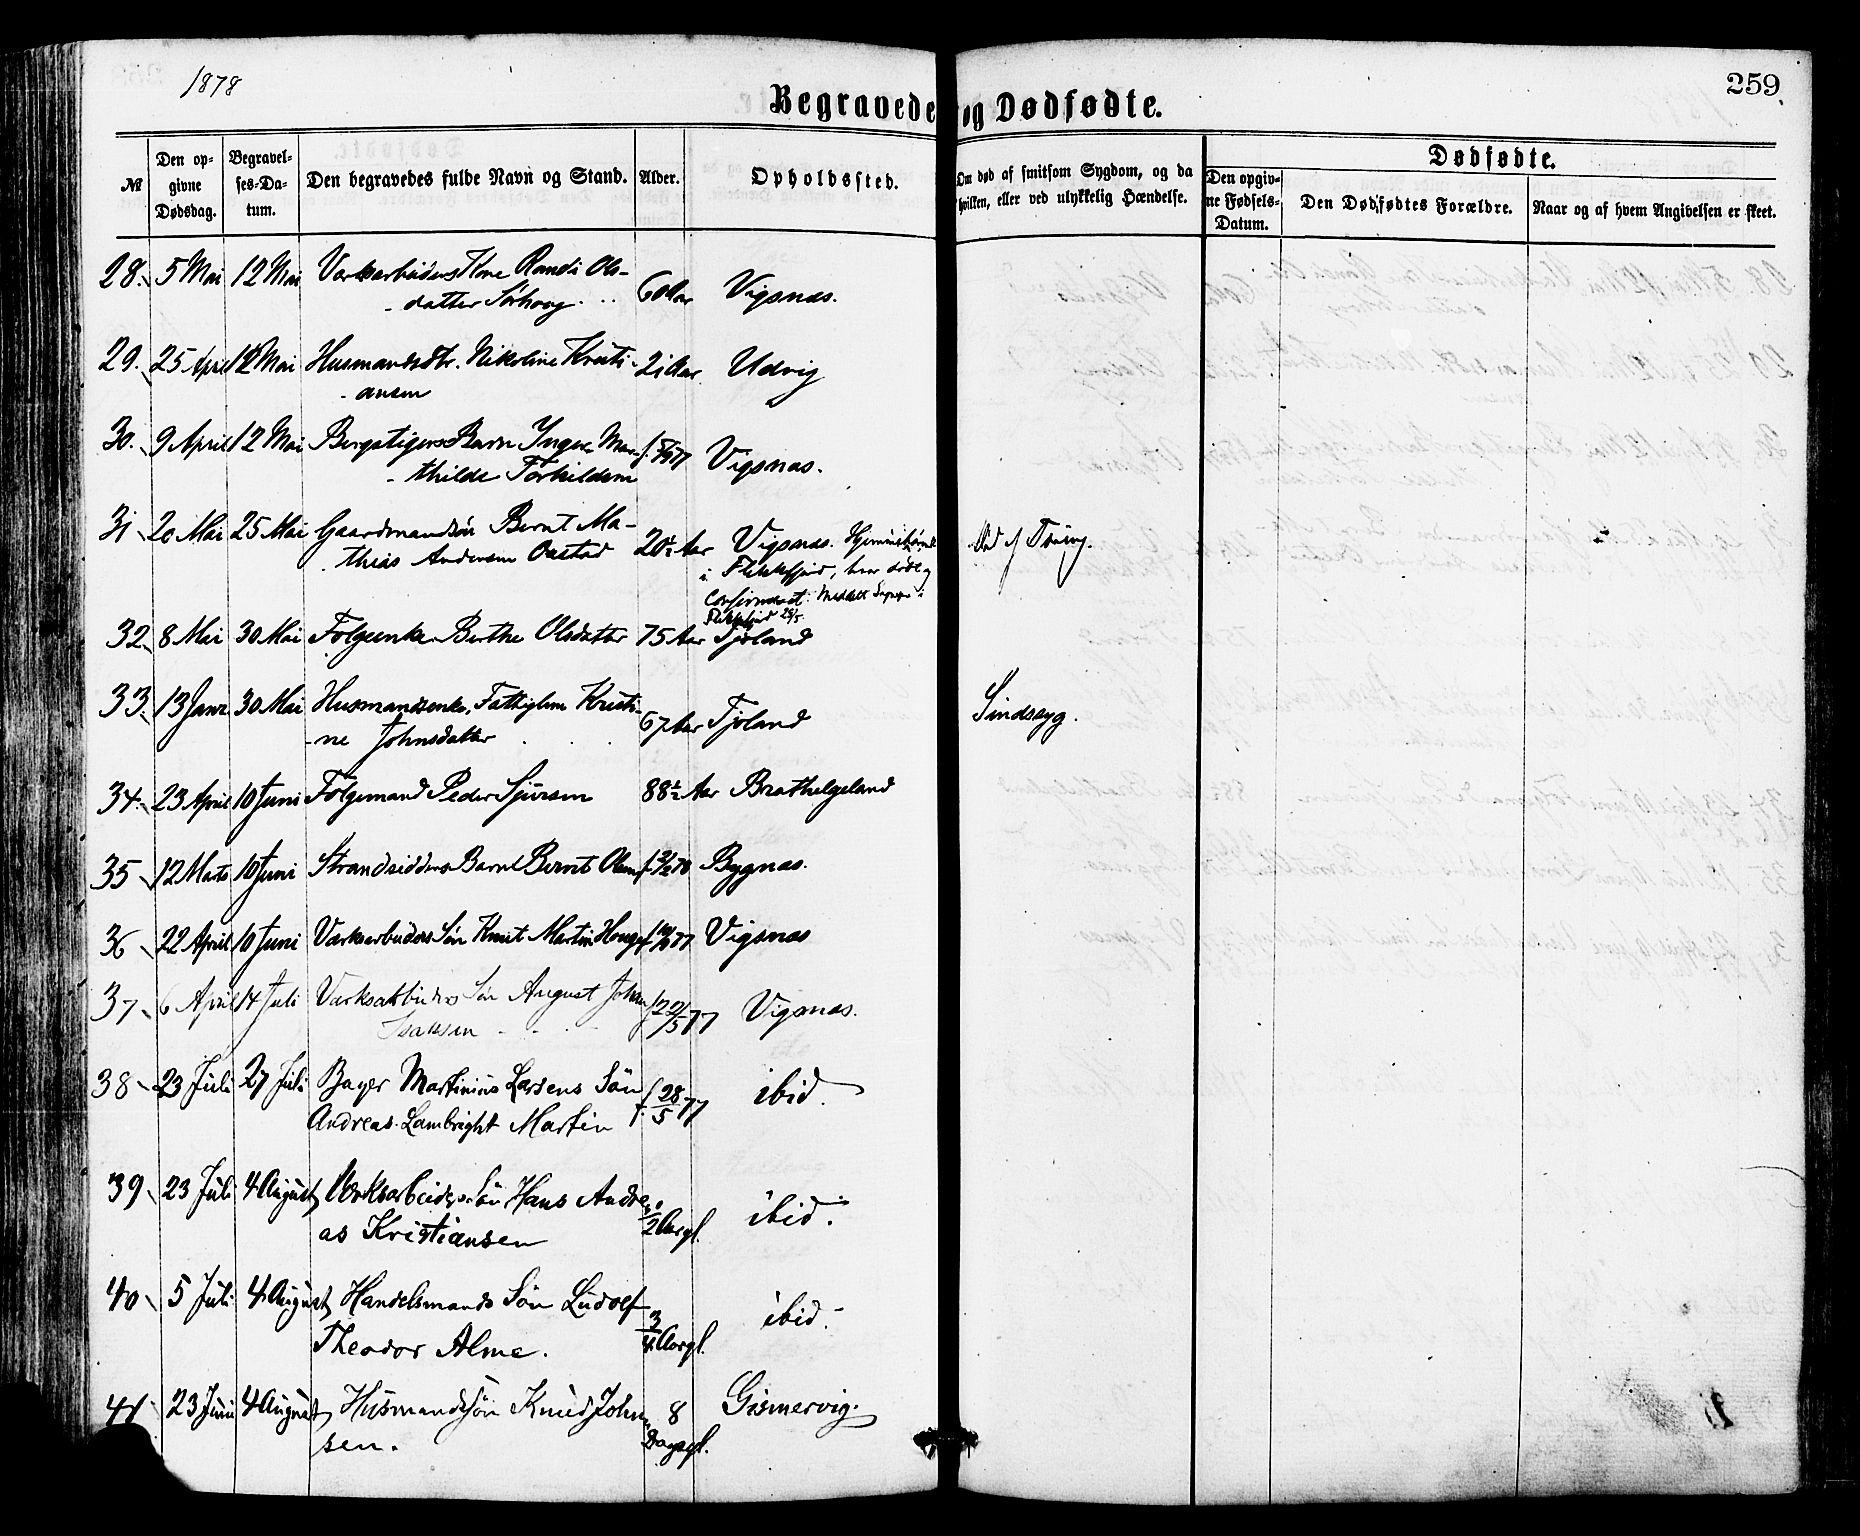 1878
259
Begravede og Dødfødte.
№
Den opgivne Dødsdag.
Begravelses-Datum.
Den begravedes fulde Navn og Stand.
Alder.
Opholdssted.
Om død af smitsom Sygdom, og da
hvilken, eller ved ulykkelig Hændelse.
Dødfødte.
Den opgivne Fødsels-Datum.
Den Dødfødtes Forældre.
Naar og af hvem Angivelsen er skeet.
28. 5 Mai 12 Mai Værksarbeiders Kone Randi Ols-
datter Sørhoug. 60 Aar Vigsnæs.
29. 25 April 12 Mai Husmandsdtr. Nikoline Kristi-
ansen 21 Aar Udvig
30. 9 April 12 Mai Bergstigers Barn Inger Ma-
thilde Torkildsen Vigsnæs.
31 20 Mai 25 Mai Gaardmandssøn Bernt Ma-
thias Andersen 20½ Aar Vigsnæs. Hjemmehørende
i Flekkefjord, hvor døbt og
Confirmeret. Meddelt
Flekkefjord
Død af Tæring.
32 8 Mai 30 Mai Følgeenke Berthe Olsdatter 75 Aar Tjøland
33. 13 Janr 30 Mai Husmandsenke, Fattiglem Kristi-
ne Johnsdatter 67 Aar Tjøland
Sindssyg.
34. 23 April 10 Juni Følgemand Peder Sjursen 88½ Aar Brathelgeland
35 12 Marts 10 Juni Strandsidders Barn Bernt Olsen Bygnæs.
36 22 April 10 Juni Værksarbeiders Søn Knut Martin Vigsnæs
37 6 April 14 Juli Værksarbeiders Søn August Johan
Isaksen f 22/5 77 Vigsnæs.
38 23 Juli 27 Juli Bager Martinius Larsens Søn
Andreas Lambright Martin f. 28/5 77 ibid.
39 23 Juli 4 August Værksarbeiders Søn Hans Andre-
as Kristiansen ½ Aargl. ibid.
40 5 Juli 4 August Handelsmands Søn Ludolf
Theodor Alme. 3/4 Aargl. ibid.
41 23 Juni 4 August Husmandssøn Knud John-
sen. 8 Dagsgl. Gismervig.